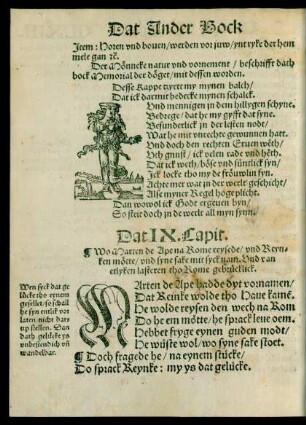 Dat Ander Bock
Item: Horen vnd bouen/werden vor juw/ynt ryke der hem
mele gan ꝛc̃.
Der Mönneke natur vnd vornement / beschrifft dath
bock Memorial der döget/mit dessen worden.
Desse Kappe tyeret my mynen balch/
Dat ick darmit bedecke mynen schalck.
Vnd mennigen jn dem hilligen schyne
Bedrege/dat he my gyfft dat syne.
Besünderlick jn der lesten nodt/
Wat he mit vnrechte gewunnen hatt.
Vnd doch den rechten
ick velen lede vnd
Dat ick weth/böse vnd sündtlick syn/
Jck locke tho my de fröuwlin syn.
Achte mer wat jn der werlt geschicht/
Alse myner Regel högeplicht.
Dan wowol ick Godt ergeuen byn/
So steit doch jn de werlt all myn synn.
Dat IX. Capit.
¶ Wo Marten de Ape na Rome reysede/vnd Reyn-
ken mötte/vnd syne sake mit syck nam. Vnd van
etlyken lasteren tho Rome gebrücklick.
Wen sick dat ge
lücke tho eynem
gesellet/so schall
he syn
laten nicht dar
vp stellen. Dan
dath gelücke ys
vnbestendich vñ
wandelbar.
MArten de Ape hadde dyt vornamen/
Dat Reinke wolde tho Haue kamẽ.
He wolde reysen den wech na Rom
Do he em mötte/he sprack leue oem.
Hebbet fryge eynen guden modt/
He wüste wol/wo syne sake stoet.
¶ Doch fragede he/na eynem stücke/
Do sprack Reynke: my ys dat gelücke.